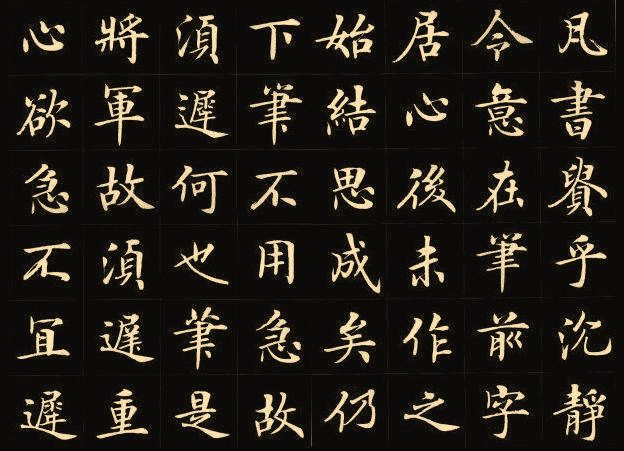 凡書貴乎沉靜
令意在筆前字
居心後未作之
始結思成矣仍
下筆不用急故
湏遲何也筆是
將軍故湏遲重
心欲急不冝遲